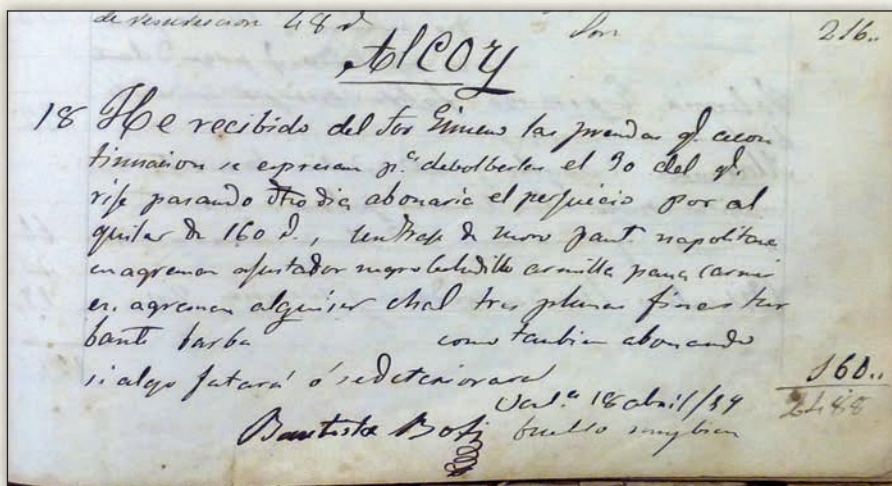 de resurreccion 48 r Son 216..
Alcoy
18 He recibido del Sor Gimeno las prendas q.e acon
tinuacion se espresan p.a debolberlas el 30 del q.e
rije pasando dho dia abonaria el perjuicio por al
quiler de 160 r., un traje de moro pant. napolitana
en agreman ajustador negro beludillo armilla pana carmi
en agreman alquiser chal tres plumas finas tur
bante barba como tanbien abonando
si algo fatará ó se deteriorara 160..
2488
Val.a 18 abril/
Bautista